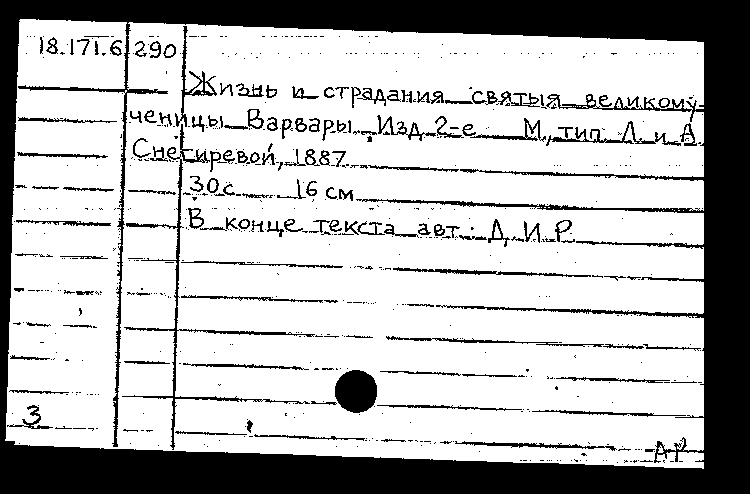 18.171.6 290
Жизнь и страдания святыя великому-
ченицы Варвары. Изд. 2-е М., тип. Л. и А.
Снегиревой, 1887.
30 с. 16 см.
В конце текста авт.: Д. И. Р.
3
АР